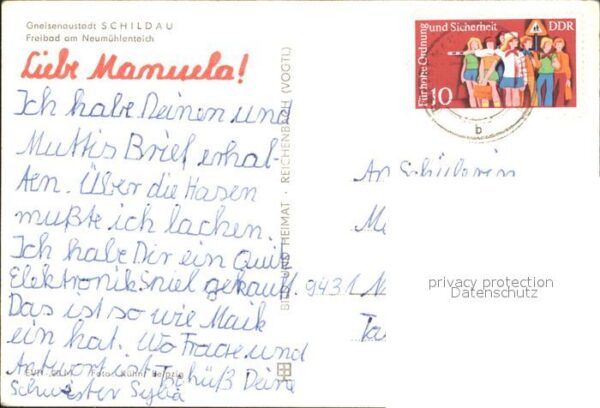 Gneisenaustadt SCHILDAU
Freibad am Neumühlenteich
Liebe Manuela!
Ich habe Deinen und
Muttis Brief erhal-
ten. Über die Hasen
mußte ich lachen.
Ich habe Dir ein Quiz
Elektronikspiel gekauft.
Das ist so wie Maik
ein hat. Wo Frage und
Antwort ist. Tschüß Deine
Schwester
BILD UND HEIMAT · REICHENBACH (VOGTL)
Für hohe Ordnung und Sicherheit
DDR
10
b
An Schülerin
9431
privacy protection
Datenschutz